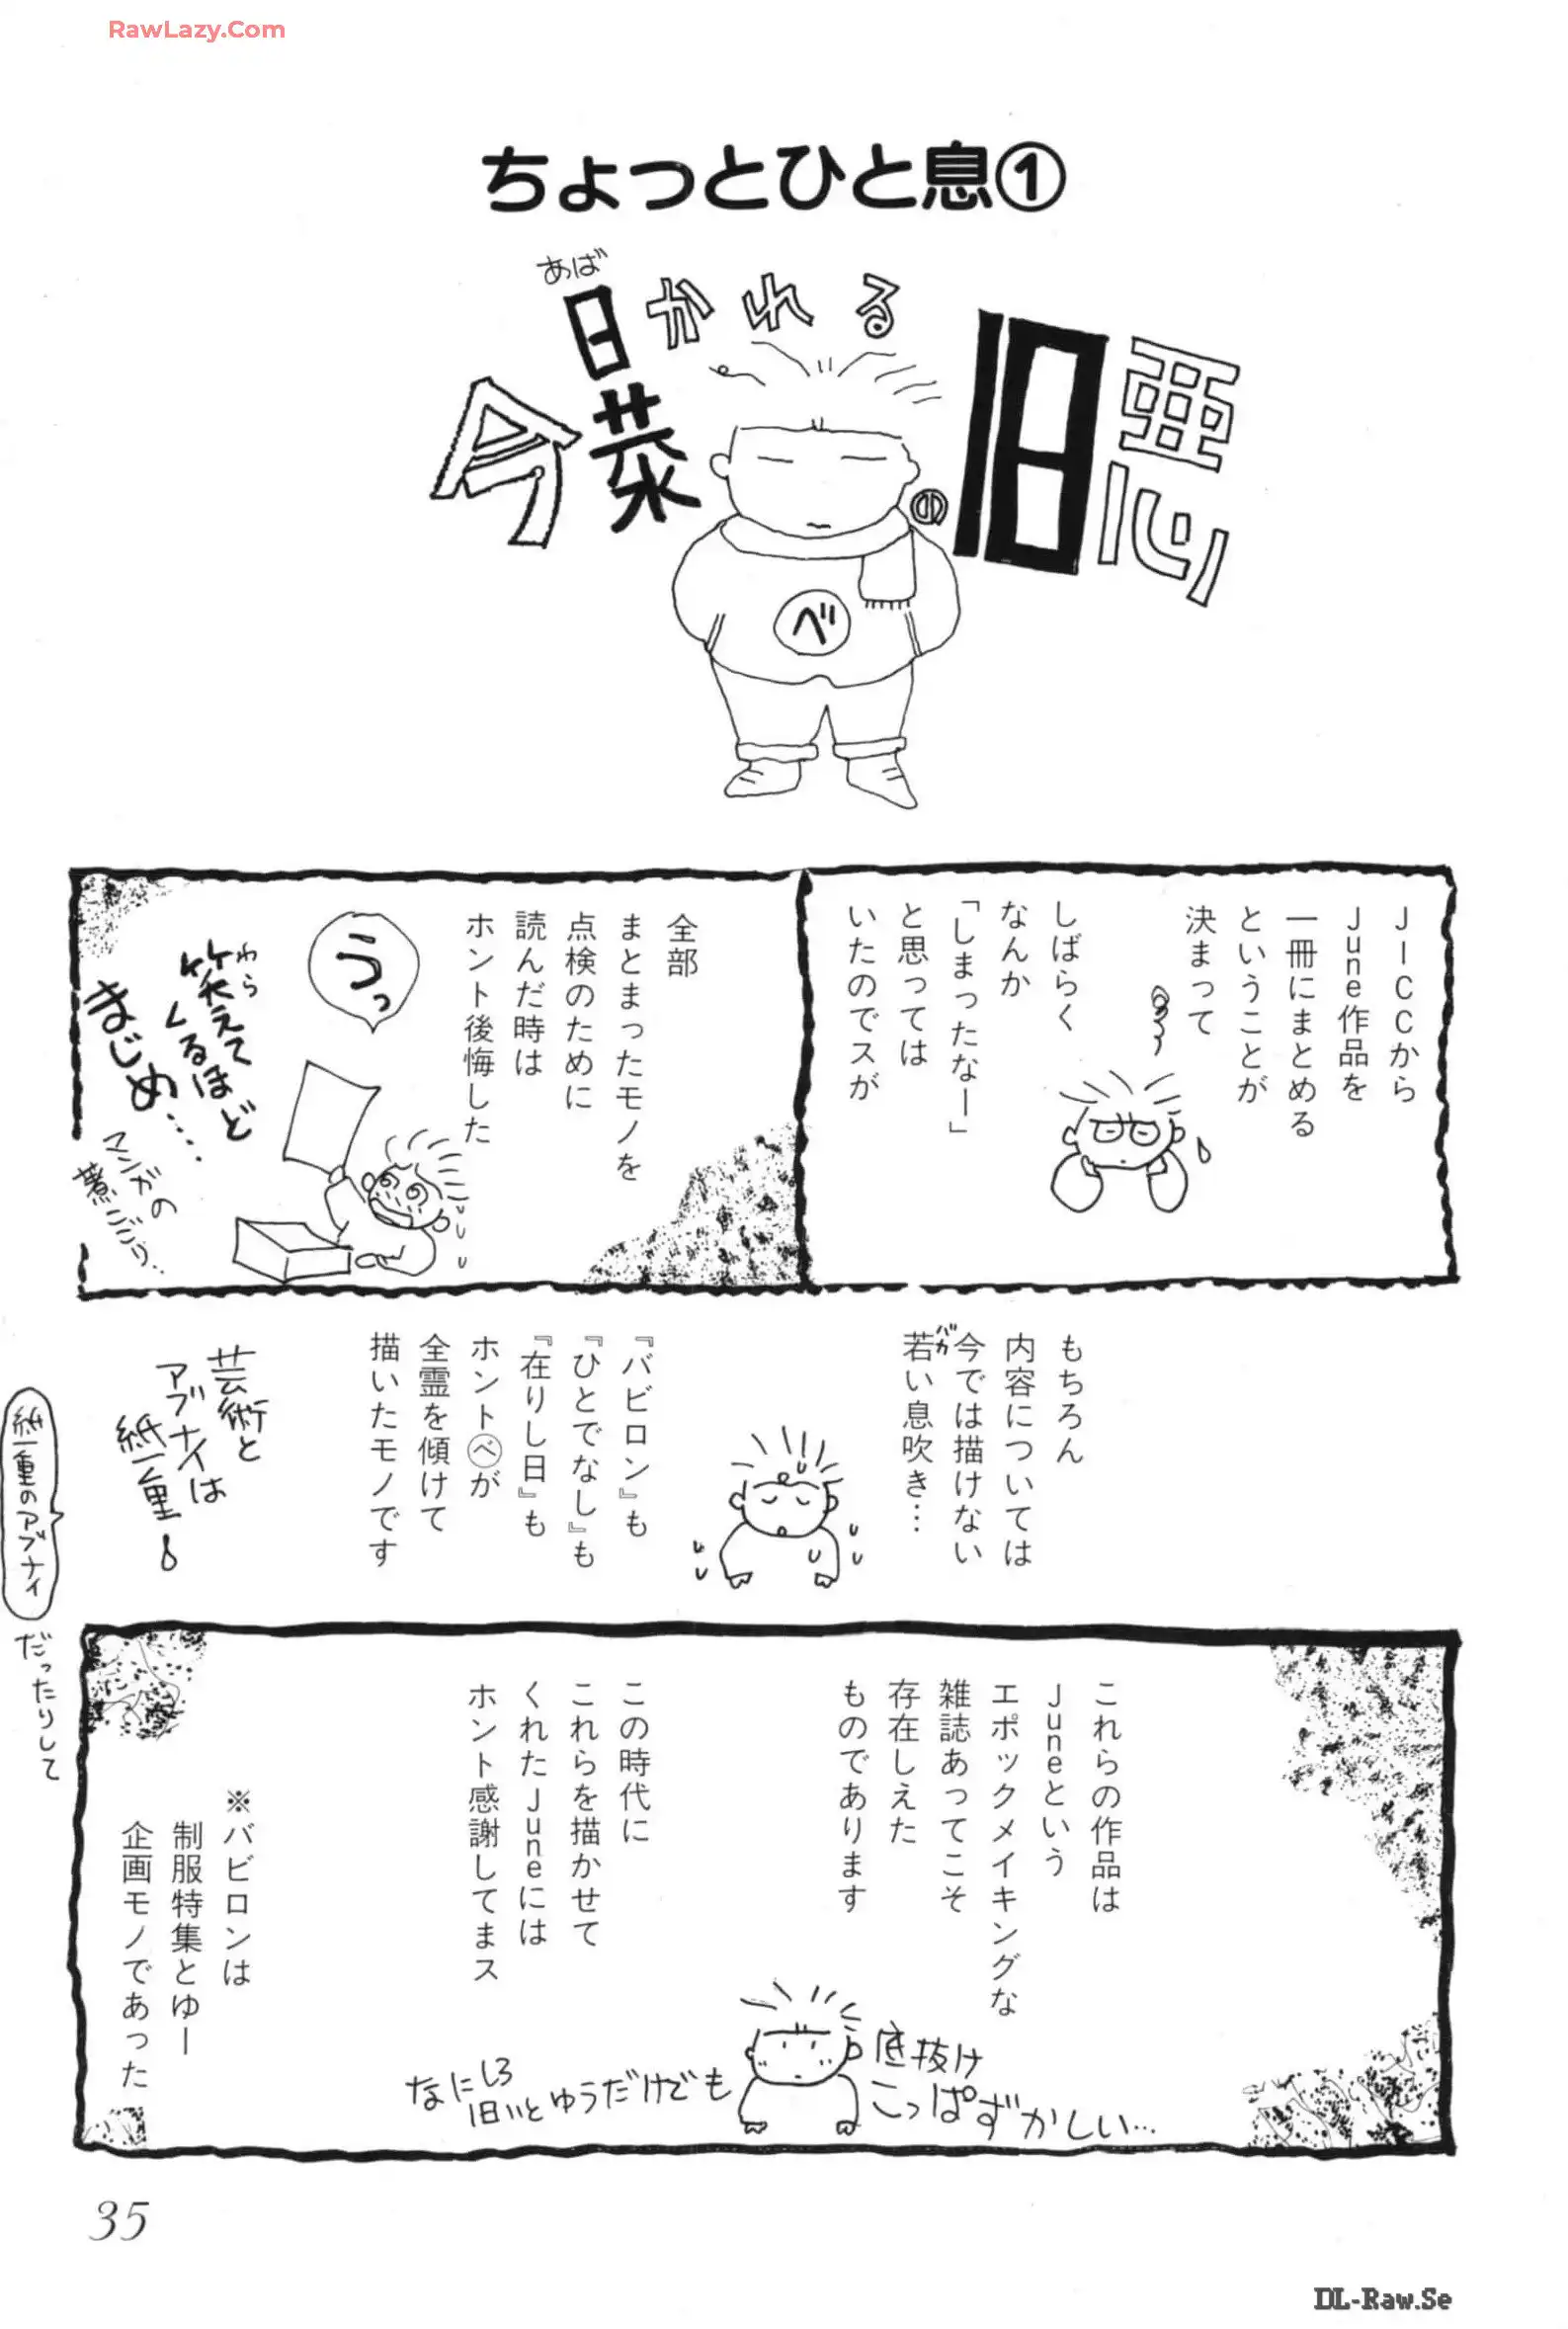 RawLazy.Com
ちょっとひと息①
あば
日かれる
今
菜
の
旧
悪
べ
JICCから
June作品を
一冊にまとめる
ということが
決まって
しばらく
なんか
「しまったなー」
と思っては
いたのでスが
全部
まとまったモノを
点検のために
読んだ時は
ホント後悔した
うっ
わら
笑えて
くるほど
まじめ‥‥
マンガの
煮こごり‥
もちろん
内容については
今では描けない
バカ
若い息吹き…
『バビロン』も
『ひとでなし』も
『在りし日』も
ホントⓑが
全霊を傾けて
描いたモノです
芸術と
アブナイは
紙一重
紙一重のアブナイ
だったりして
これらの作品は
Juneという
エポックメイキングな
雑誌あってこそ
存在しえた
ものであります
この時代に
これらを描かせて
くれたJuneには
ホント感謝してまス
※バビロンは
制服特集とゆー
企画モノであった
底抜け
こっぱずかしい…
なにしろ
旧いとゆうだけでも
35
DL-Raw.Se